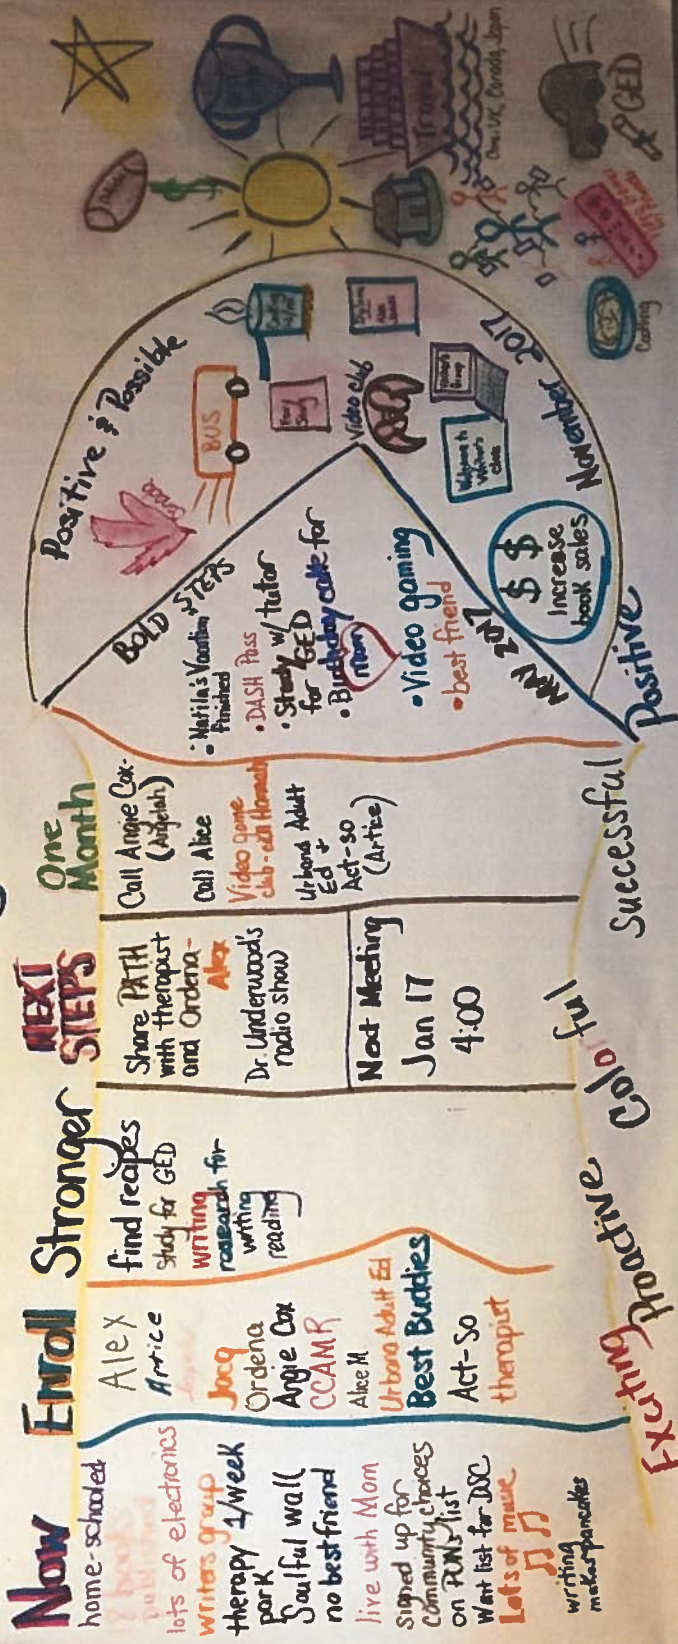 Now
home-schooled
8 books
published
lots of electronics
writers group
therapy 1/week
park
Soulful wall
no best friend
live with Mom
signed up for
community choices
on PUNs list
Wait list for DSC
Lots of music
writing
makes pancakes
Enroll
Alex
Artice
Jacq
Ordena
Angie Cox
CCAMR
Alice M
Urbana Adult Ed
Best Buddies
Act-So
therapist
Stronger
find recipes
study for GED
writing
research for
writing
reading
NEXT
STEPS
Share PATH
with therapist
and Ordena-
Alex
Dr. Underwood's
radio show
Next Meeting
Jan 17
4:00
One
Month
Call Angie Cox-
(Angelah)
Call Alice
Video game
club - call Hannah
Urbana Adult
Ed +
Act-so
(Artice)
BOLD STEPS
• Matila's Vacation
finished
• DASH Pass
• Study w/ tutor
for GED
• Birthday cake for
Mom
• Video gaming
• best friend
May 2017
Positive & Possible
BUS
Video club
Welcome to
November 2017
$ $
$ $
Increase
book sales
Travel
GED
Cooking
Exciting
Proactive
Colorful
Successful
Positive